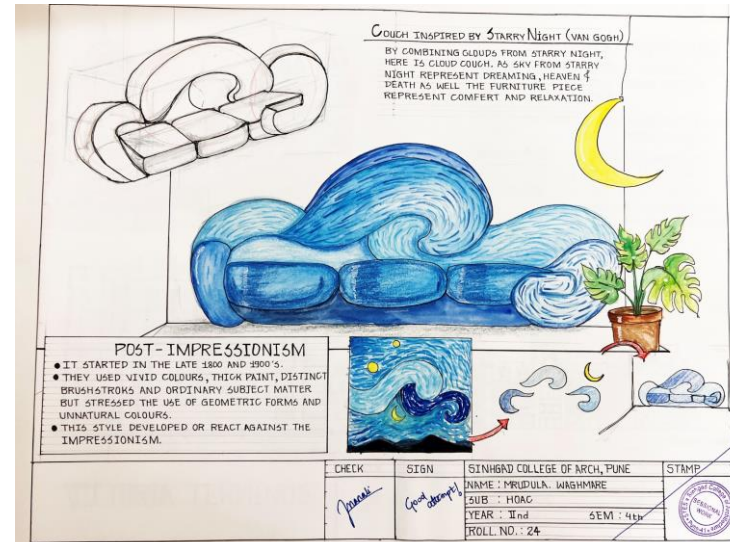 COUCH INSPIRED BY STARRY NIGHT (VAN GOGH)
BY COMBINING CLOUDS FROM STARRY NIGHT,
HERE IS CLOUD COUCH. AS SKY FROM STARRY
NIGHT REPRESENT DREAMING, HEAVEN &
DEATH AS WELL THE FURNITURE PIECE
REPRESENT COMFERT AND RELAXATION.
POST-IMPRESSIONISM
• IT STARTED IN THE LATE 1800 AND 1900'S.
• THEY USED VIVID COLOURS, THICK PAINT, DISTINCT
BRUSHSTROKS AND ORDINARY SUBJECT MATTER
BUT STRESSED THE USE OF GEOMETRIC FORMS AND
UNNATURAL COLOURS.
• THIS STYLE DEVELOPED OR REACT AGAINST THE
IMPRESSIONISM.
CHECK
SIGN
Good attempt!
SINHGAD COLLEGE OF ARCH, PUNE
NAME : MRUDULA. WAGHMARE
SUB : HOAC
YEAR : IInd SEM : 4th
ROLL. NO. : 24
STAMP
SESSIONAL
WORK